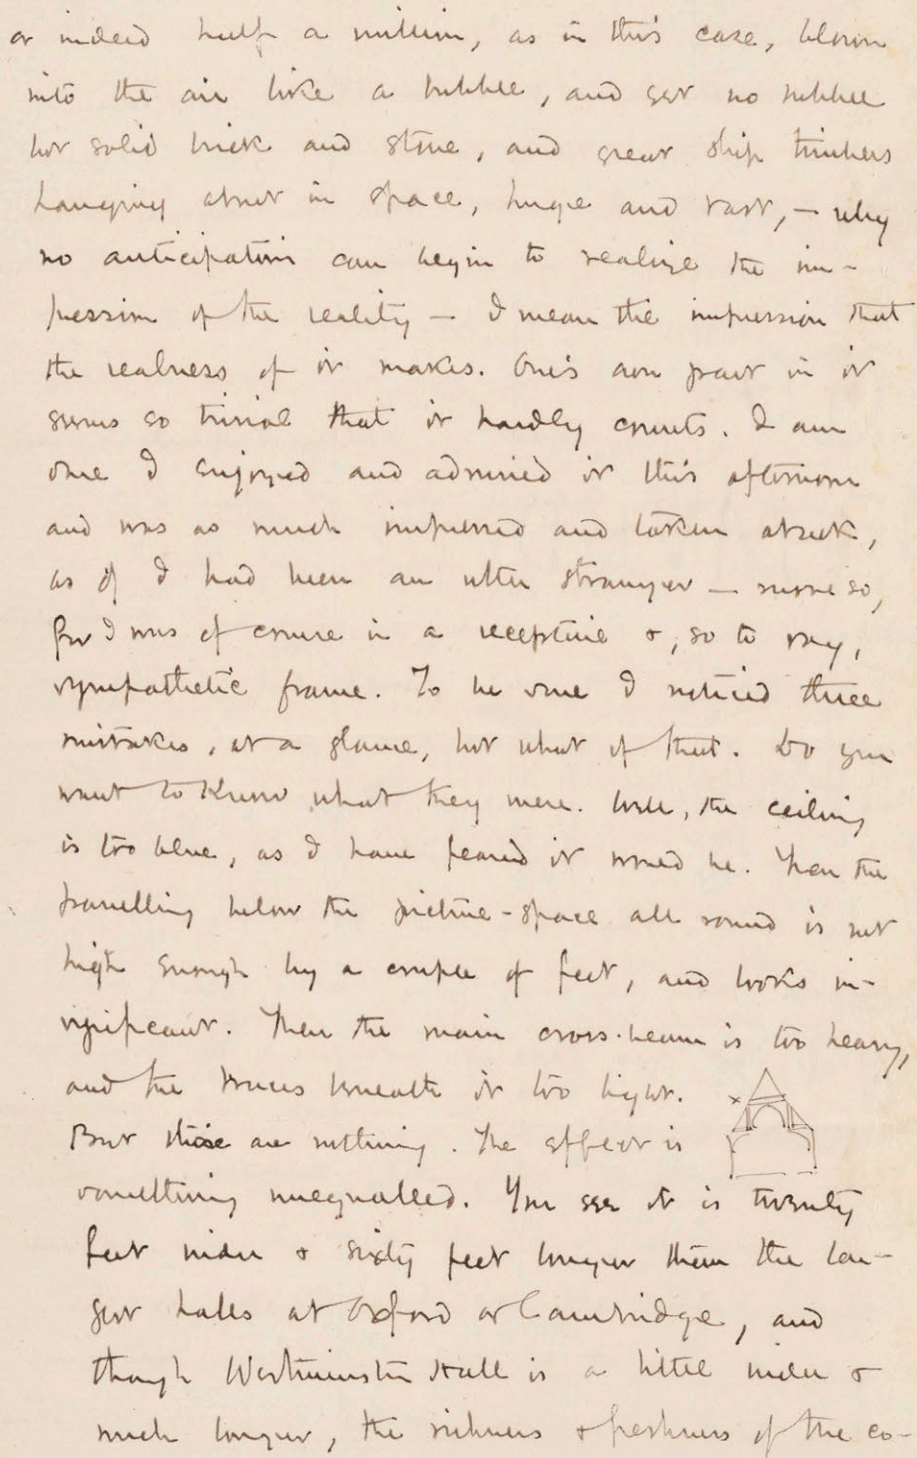 or indeed half a million, as in this case, blown
into the air like a bubble, and yet no bubble
but solid brick and stone, and great ship timbers
hanging about in space, huge and vast, — why
no anticipation can begin to realize the im-
pression of the reality — I mean the impression that
the realness of it makes. One's own part in it
seems so trivial that it hardly counts. I am
sure I enjoyed and admired it this afternoon
and was as much impressed and taken aback,
as if I had been an utter stranger — more so,
for I was of course in a receptive &, so to say,
sympathetic frame. To be sure I noticed three
mistakes, at a glance, but what of that. Do you
want to know what they were. Well, the ceiling
is too blue, as I have feared it would be. Then the
panelling below the picture-space all round is not
high enough by a couple of feet, and looks in-
significant. Then the main cross-beam is too heavy,
and the braces beneath it too light. x
But these are nothing. The effect is
something unequalled. You see it is twenty
feet wider & sixty feet longer than the lar-
gest halls at Oxford or Cambridge, and
though Westminster Hall is a little wider &
much longer, the richness & freshness of the co-